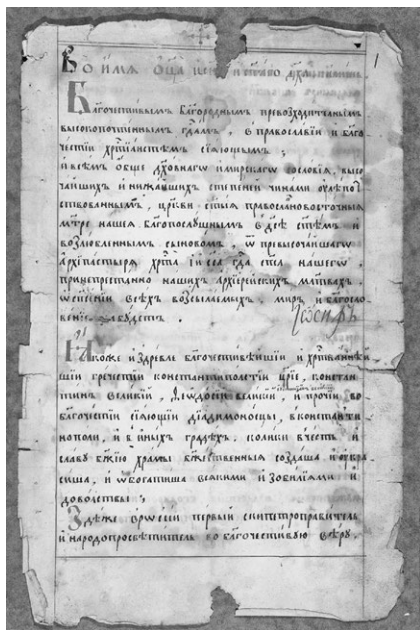 Во имя ѻц҃а
Бл҃гочестивымъ благороднымъ превозходитчанымъ
высокопочтеннымъ гд҃амъ, в православіи и благо
честіи хрⷭ҇тіанстѣмъ сіяющымъ;
и всѣмъ обще духовнагѡ и мирскагѡ сословія, высо
чайшихъ и нижайшихъ степеней чинами
ствованнымъ, цр҃кви ст҃ыя православновосточныя
мт҃ре нашея благопослушнымъ в дс҃ѣ ст҃ѣмъ и
возлюбленнымъ сыновомъ, ѿ превысочайшагѡ
архіпастыря хрⷭ҇та іиса гд҃а нашегѡ,
принепрестанно нашихъ архіерейскихъ мл҃твахъ
ѡ спсеніи всѣхъ возсылаемыхъ, миръ, и благосло
веніе да будетъ.
Іѡсифъ
Якоже и здревле благочестивѣишіи и хрⷭ҇тіаннѣи
шіи гречестіи константінополстіи цр҃іе, констан
тинъ великій, Ѳеѡдосій великій и прочіи во
благочестіи сіяющіи діадимоносцы, в констаⷩ҇ти
нополи, и в иныхъ градѣхъ, колики в честь и
славу бж҃ію храмы бж҃ественныя создаша и укра
сиша, и ѡбогатиша всякими изобиліями и
доволствы;
Здѣже в рѡссіи первый скипетроправитель
и народопросвѣтитель во благочестивую вѣру,